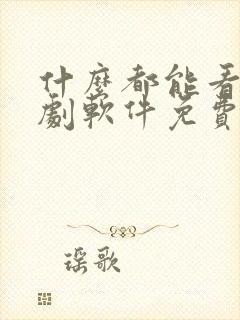 什麼都能看
劇軟件免費
瑶歌